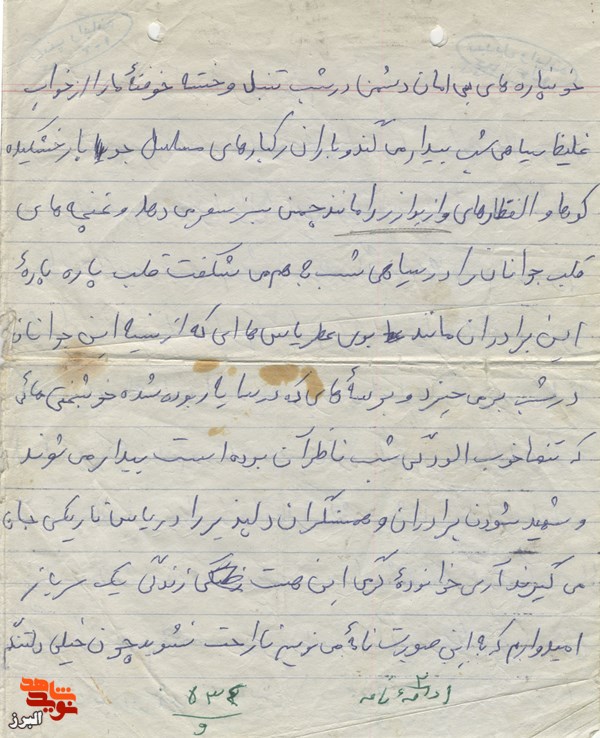 خمپاره های بی امان دشمن در شب تنبل و خسته خوفتهٔ ما را از خواب
غلیظ سیاهی شب بیدار می کند و باران رگبارهای مسلسل جوبار خشکیده
کوها و را مانند چمن سبز سفر می دهد و غنچه های
قلب جوانان را در سیاهی شب به هم می شکفت قلب پاره پارهٔ
این برادران مانند بوی عطر یاس ها ای که از سینه این جوانان
در شب بر می خیزد و بوسهٔ های که در سا یار بوده شده خوشبختی هائی
که تنها خوب الودگی شب ناظر آن بوده است بیدار می شوند
و شهید شودن برادران و همسنگران دلپذیر را در یاس تاریکی جای
می گیرند آری خوانودهٔ گرمی این هست زندگی یک سرباز
امیدوارم که به این صورت نامهٔ می نویسم ناراحت نشوید چون خیلی دلتنگ
ادامهٔ نامه
۲
۵۳۴
و
شاهد
نوید
البرز